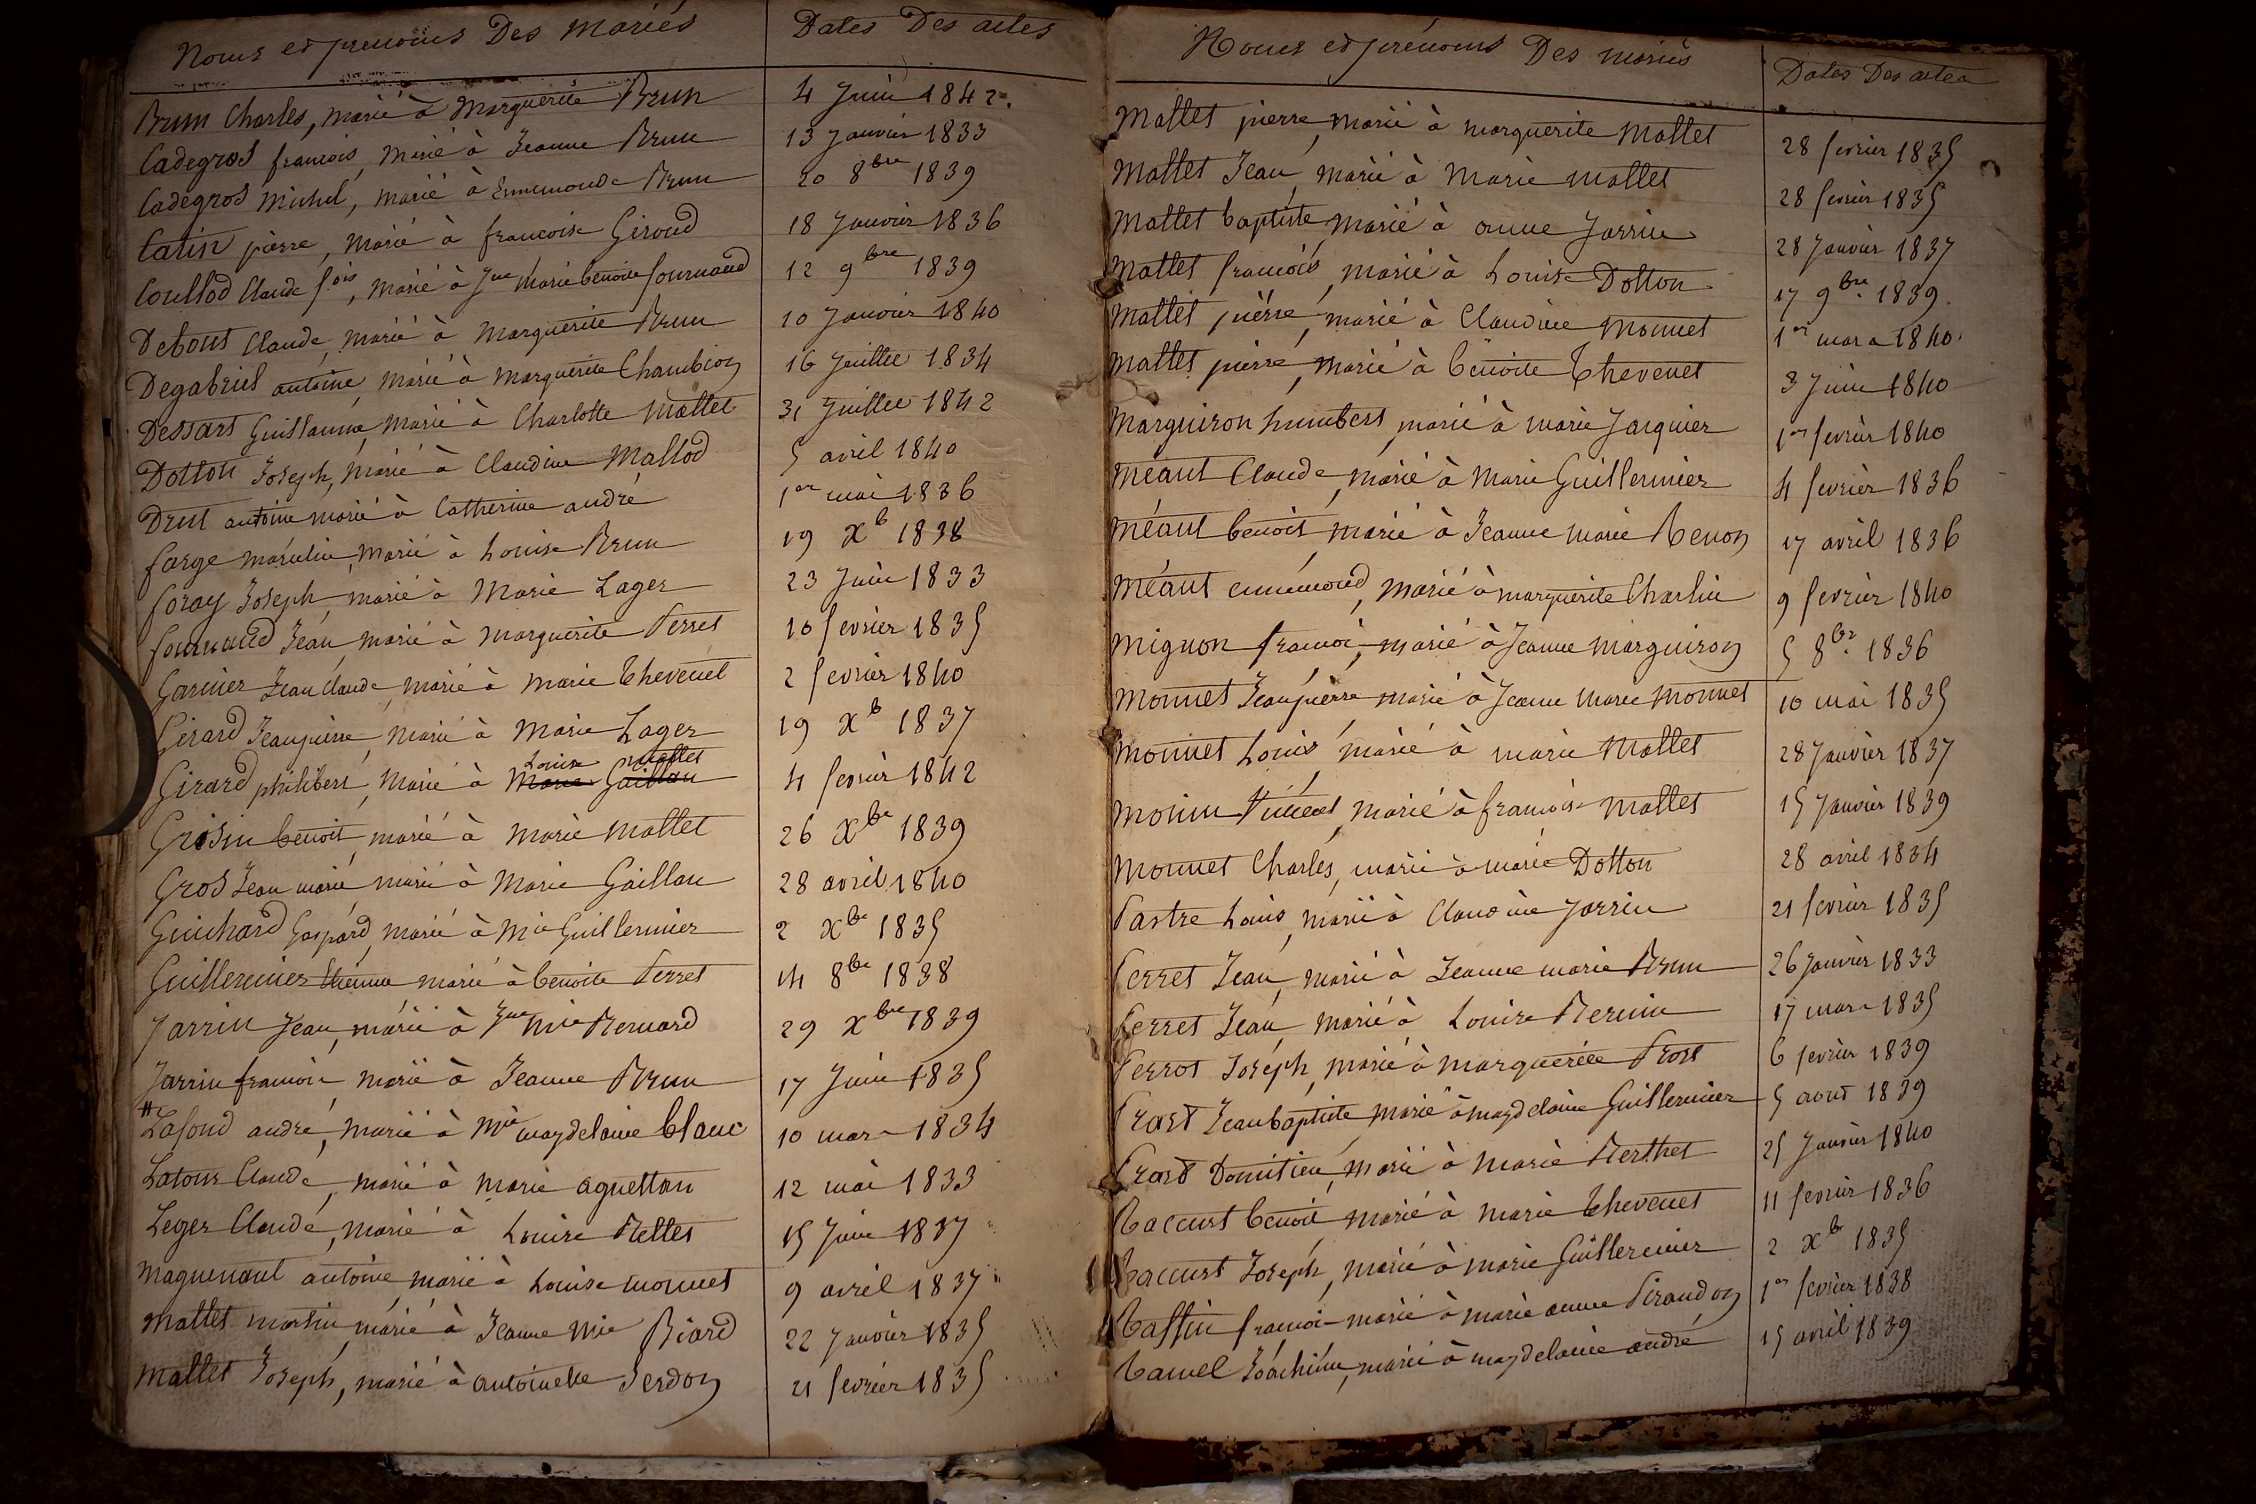 Noms et prenoms Des mariés Dates Des actes
Brun Charles, marié à Marguerite Brun 4 Juin 1842.
Cadegros francois, marié à Jeanne Brun 13 Janvier 1833
Cadegros Michel, marié à Ennemonde Brun 20 8bre 1839
Catin pierre, marié à francoise Giroud 18 Janvier 1836
Coullod Claude fois, marié à Jne Marie benoite fournaud 12 9bre 1839
Debout Claude, marié à Marguerite Brun 10 Janvier 1840
Degabriel antoine, marié à Marguerite Chambion 16 Juillet 1834
Dessart Guillaume, marié à Charlotte Mallet 31 Juillet 1842
Dotton Joseph, marié à Claudine Mallod 5 avril 1840
Drut antoine marié à Catherine andré 1er mai 1836
farge marcelin, marié à Louise Brun 19 xb 1838
foray Joseph, marié à Marie Lager 23 Juin 1833
fournaud Jean, marié à marguerite Perret 10 fevrier 1835
Garnier Jean Claude, marié à Marie Thevenet 2 fevrier 1840
Girard Jean pierre, marié à Marie Lager 19 xb 1837
Louise Mallet
Girard philibert, marié à Marie Gaillan 4 fevrier 1842
Grisin benoit, marié à Marie Mallet 26 xbre 1839
Gros Jean marie marié à Marie Gaillan 28 avril 1840
Guichard Gaspard, marié à Mie Guillermier 2 xbre 1835
Guillermier Etienne marié à benoite Perret 14 8bre 1838
Jarrin Jean, marié à Jne Mie Bernard 29 xbre 1839
Jarrin francois, marié à Jeanne Brun 17 Juin 1835
Lafond andré, marié à Mie magdelaine blanc 10 mars 1834
Latour Claude, marié à Marie aguettan 12 mai 1833
Leger Claude, marié à Louise Mettet 15 Juin 1837
Maguenaut antoine, marié à Louise monnet 9 avril 1837
Mallet martin, marié à Jeanne Mie Biard 22 Janvier 1835
Mallet Joseph, marié à antoinette Jerdon 21 fevrier 1835
Noms et prénoms Des mariés Dates Des actes
Mallet pierre, marié à marguerite Mallet 28 fevrier 1835
Mallet Jean, marié à Marie mallet 28 fevrier 1835
Mallet baptiste, marié à anne Jarrin 28 Janvier 1837
Mallet francois, marié à Louise Dotton 17 9bre 1839
Mallet pierre, marié à Claudine Monnet 1er mars 1840
Mallet pierre, marié à benoite Thevenet 3 Juin 1840
Marguiron humbert, marié à marie Jarquier 1er fevrier 1840
Méaut Claude, marié à Marie Guillermier 4 fevrier 1836
Méaut benoit, marié à Jeanne Marie Benon 17 avril 1836
Méaut ennémond, marié à marguerite Charlin 9 fevrier 1840
Mignon francois, marié à Jeanne Marguiron 5 8bre 1836
Monnet Jean pierre marié à Jeanne Marie Monnet 10 mai 1835
Monnet Louis, marié à marie Mallet 28 Janvier 1837
Monnu Vincent, marié à francoise Mallet 15 Janvier 1839
Monnet Charles, marié à marie Dotton 28 avril 1834
Pastre Louis, marié à Claudine Jarrin 21 fevrier 1835
Perret Jean, marié à Jeanne marie Brun 26 Janvier 1833
Perret Jean, marié à Louise Bernin 17 mars 1835
Perrot Joseph, marié à Marguerite Prost 6 fevrier 1839
Prost Jean baptiste, marié à magdelaine Guillermier 5 aout 1839
Prost Domitien, marié à Marie Berthet 25 Janvier 1840
Raccurt benoit, marié à Marie Thevenet 11 fevrier 1836
Raccurt Joseph, marié à marie Guillermier 2 xb 1835
Raffin francois marié à marie anne Piraudon 1er fevrier 1838
Ramel Joachim, marié à magdelaine andré 15 avril 1839